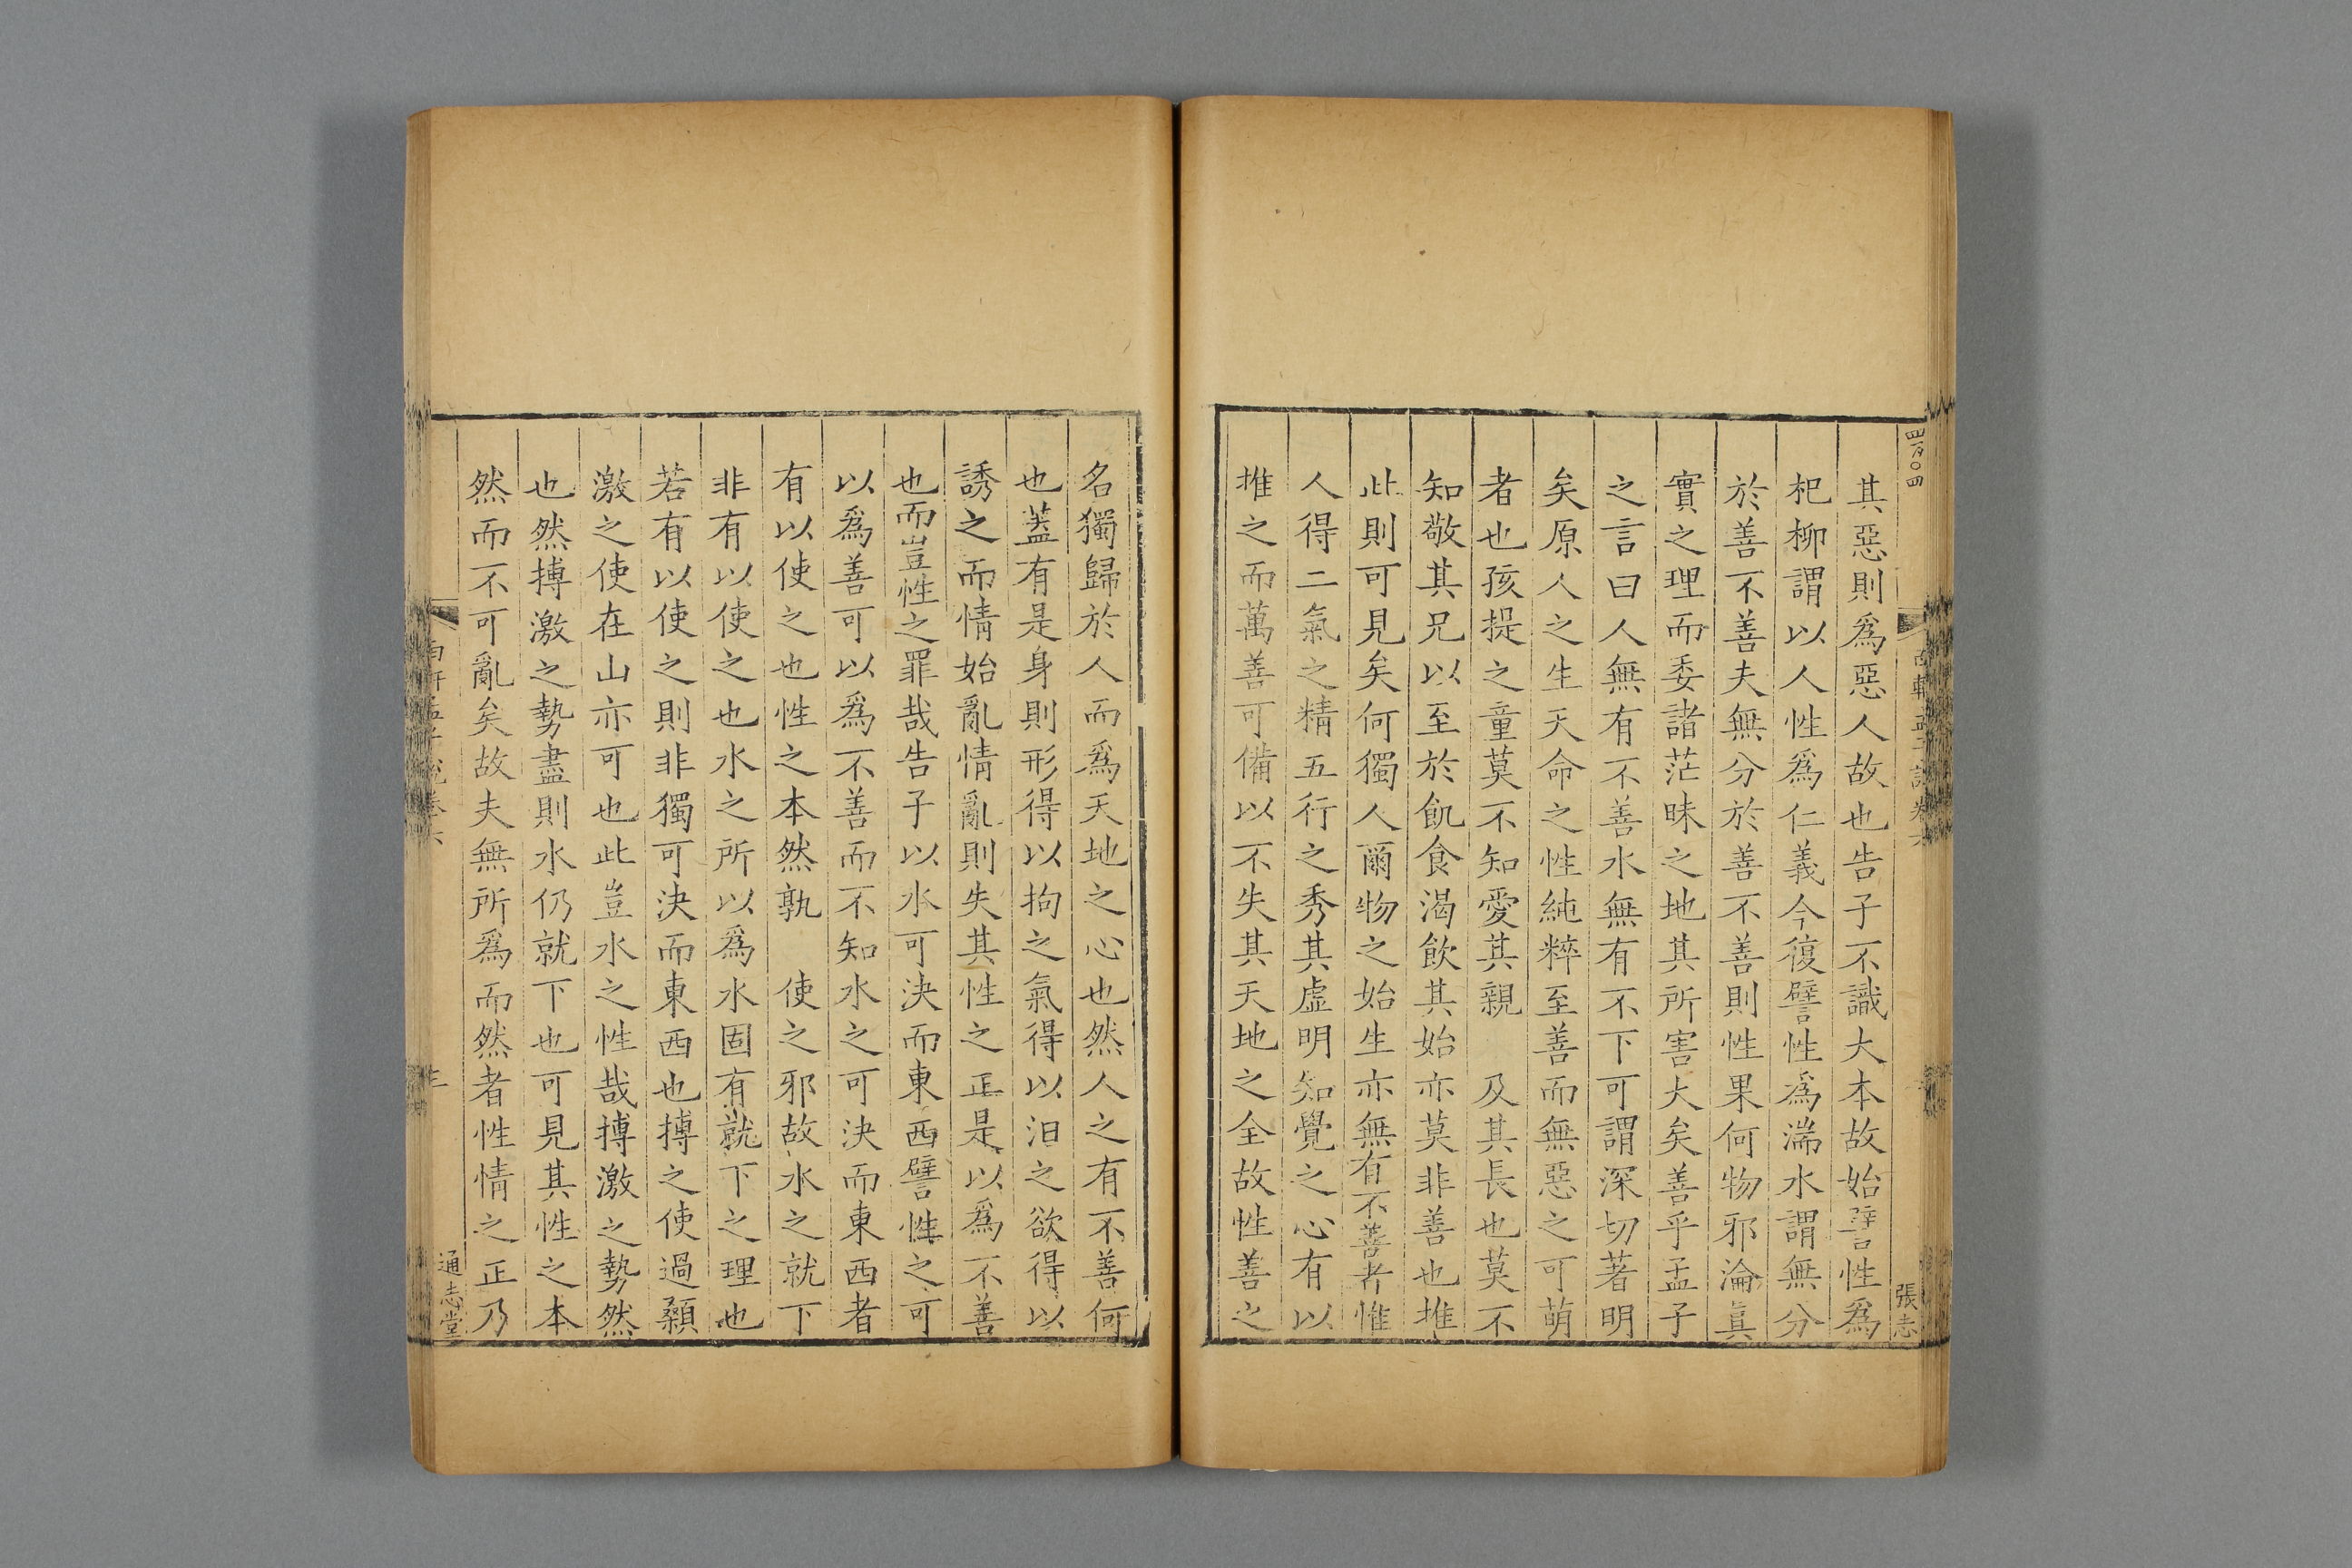 四百〇四
張志
其惡則爲惡人故也告子不識大本故始譬性爲
杞柳謂以人性爲仁義今復譬性爲湍水謂無分
於善不善夫無分於善不善則性果何物邪淪眞
實之理而委諸茫昧之地其所害大矣善乎孟子
之言曰人無有不善水無有不下可謂深切著明
矣原人之生天命之性純粹至善而無惡之可萌
者也孩提之童莫不知愛其親 及其長也莫不
知敬其兄以至於飢食渴飲其始亦莫非善也推
此則可見矣何獨人爾物之始生亦無有不善者惟
人得二氣之精五行之秀其虛明知覺之心有以
推之而萬善可備以不失其天地之全故性善之
名獨歸於人而爲天地之心也然人之有不善何
也蓋有是身則形得以拘之氣得以汩之欲得以
誘之而情始亂情亂則失其性之正是以爲不善
也而豈性之罪哉告子以水可決而東西譬性之可
以爲善可以爲不善而不知水之可決而東西者
有以使之也性之本然孰 使之邪故水之就下
非有以使之也水之所以爲水固有就下之理也
若有以使之則非獨可決而東西也搏之使過顙
激之使在山亦可也此豈水之性哉搏激之勢然
也然搏激之勢盡則水仍就下也可見其性之本
然而不可亂矣故夫無所爲而然者性情之正乃
通志堂